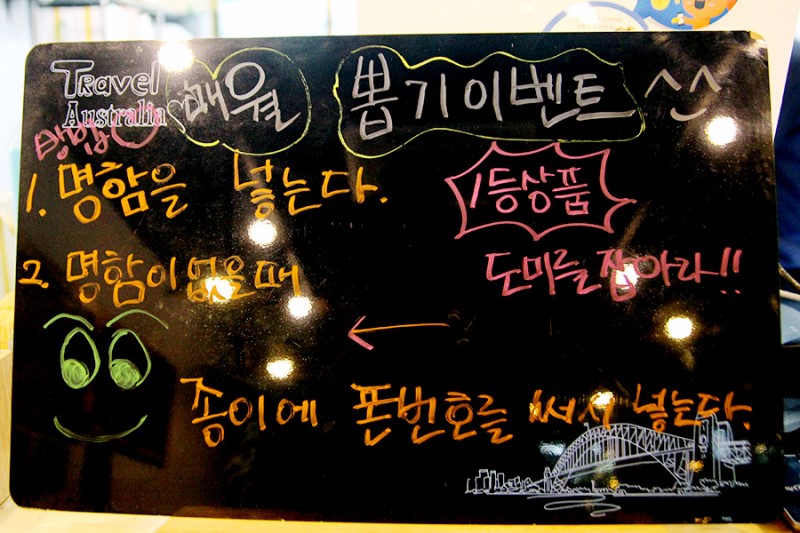 Travel
Australia 매월 뽑기이벤트 ^^
방법
1. 명함을 넣는다. 1등상품
2. 명함이 없을때 도미를 잡아라!!
종이에 폰번호를 써서 넣는다.